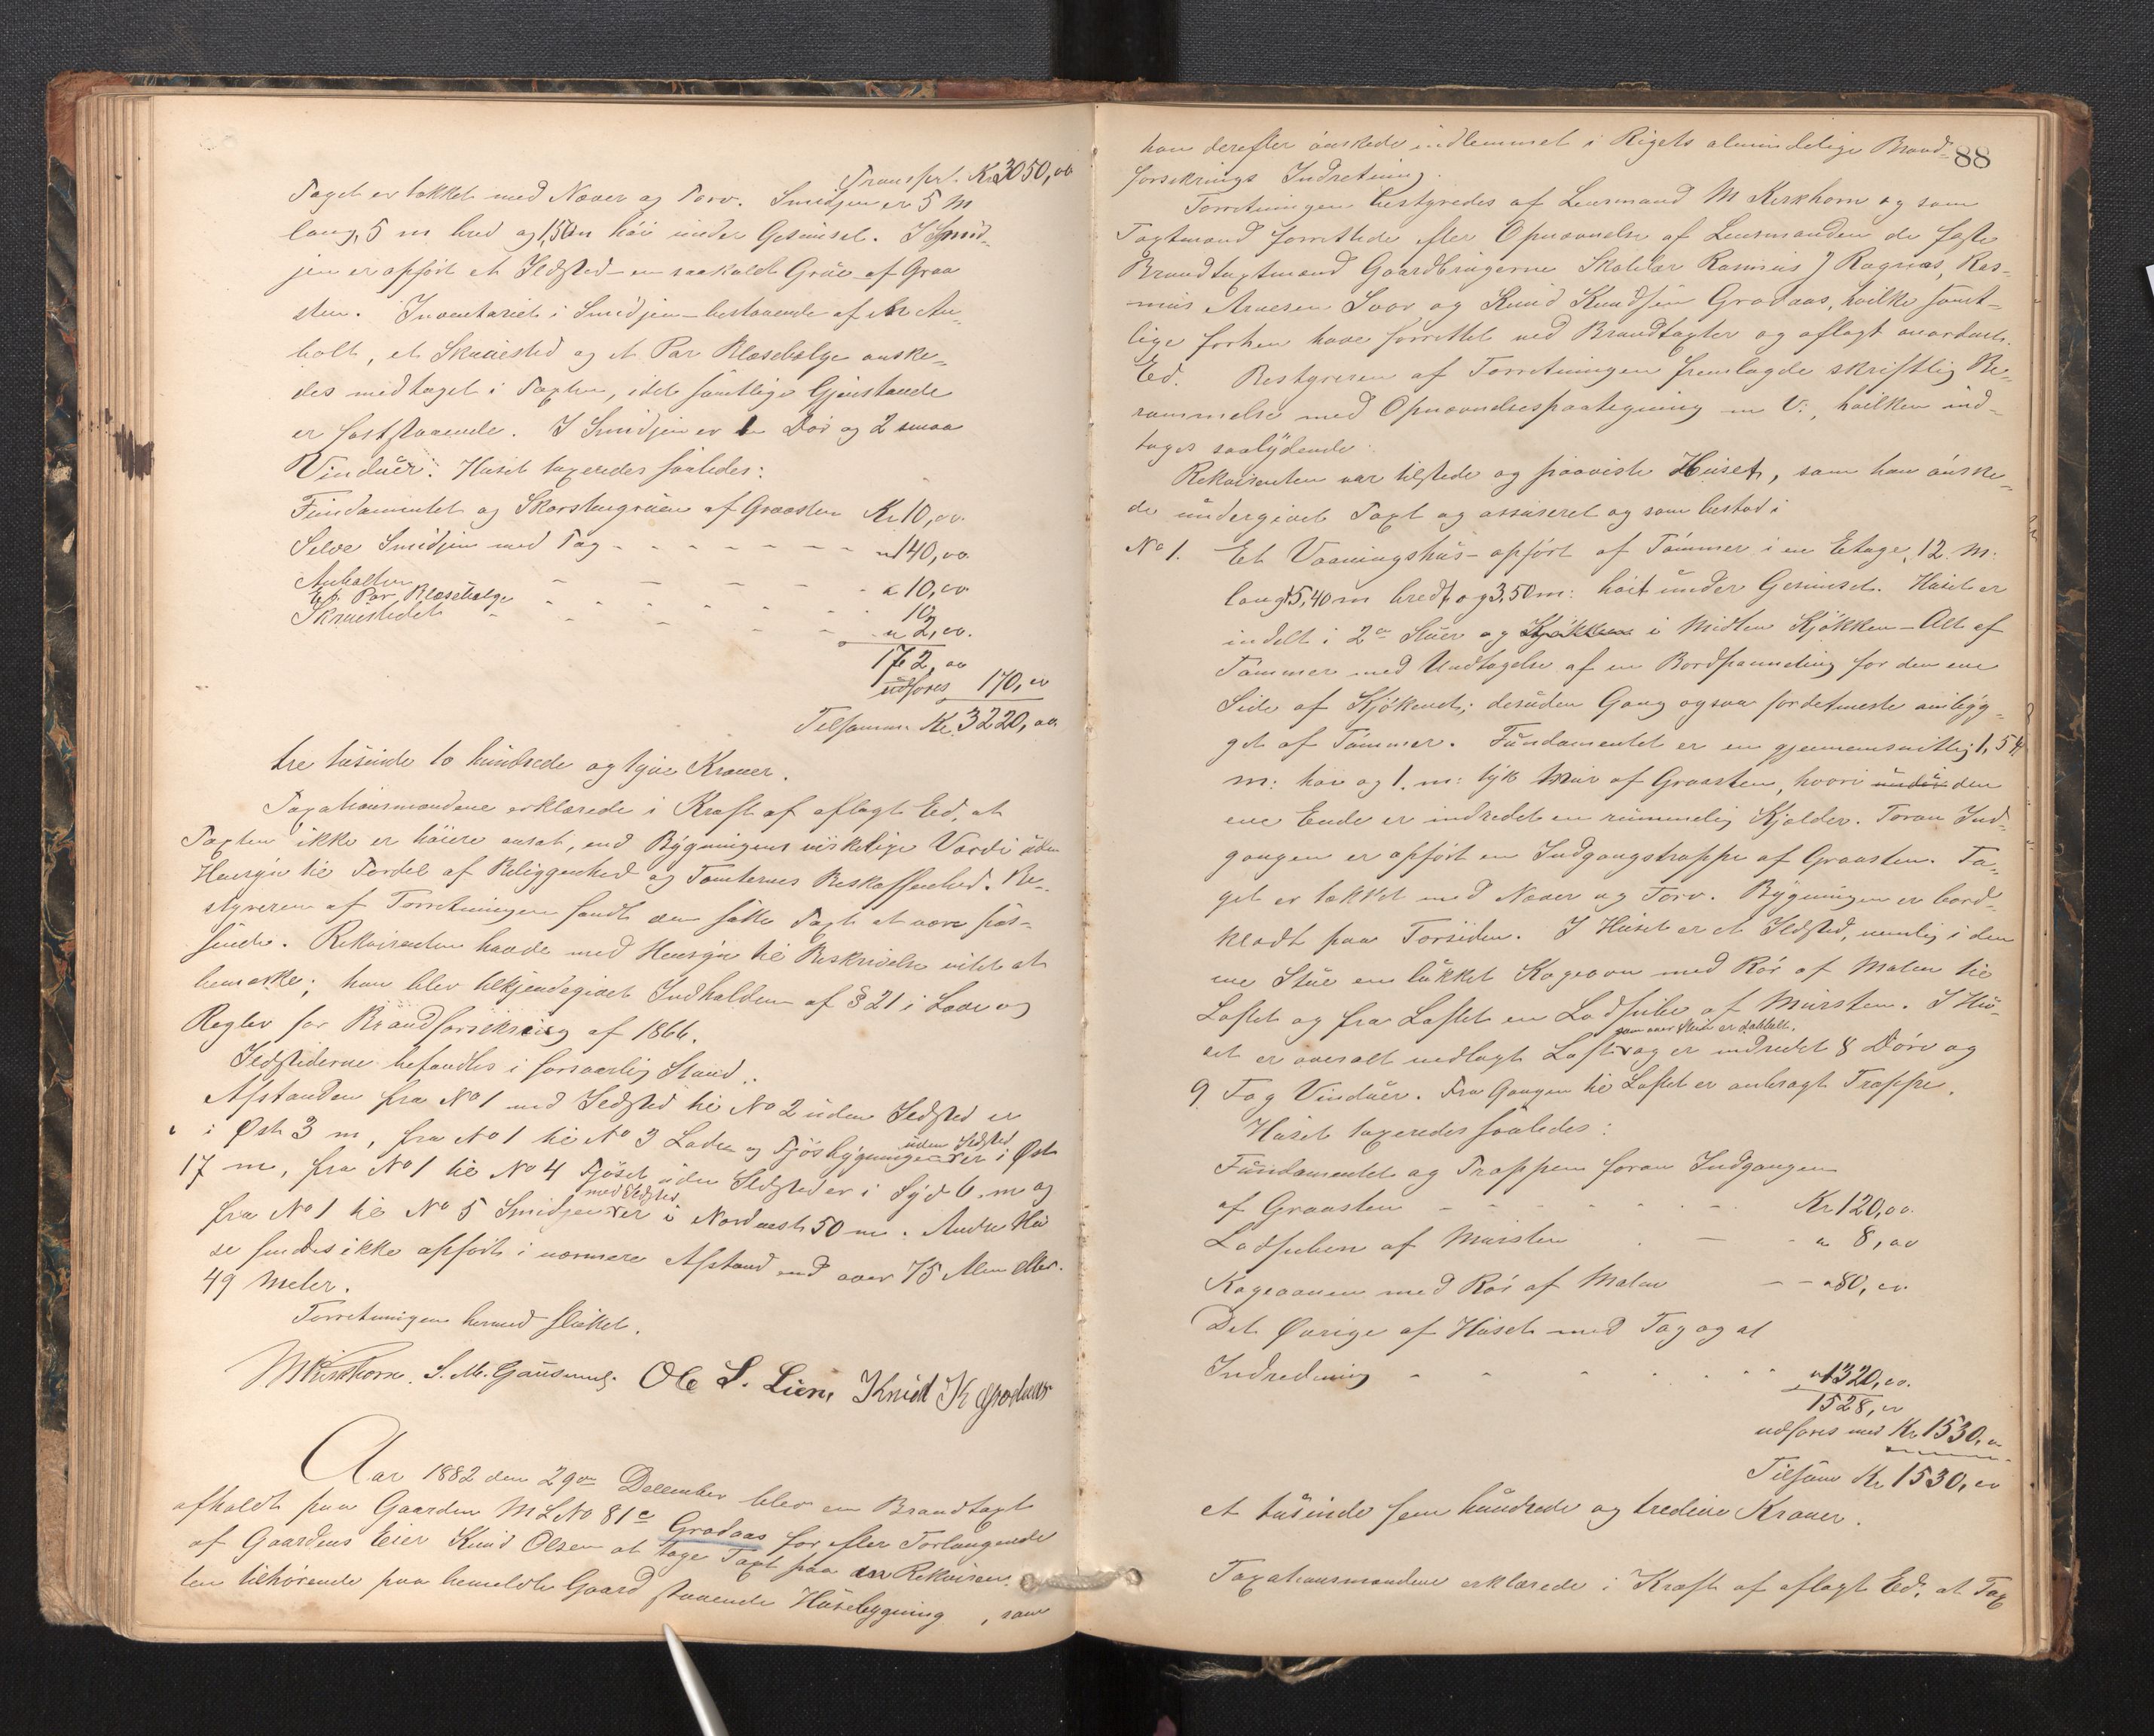 Transprt. Kr 3050,00
Taget er tækket med Næver og Torv. Smidjen er 5 M
lang, 5 m bred og 1,50 m höi under Gesimset. I Smid-
jen er opført et Ildsted - en saakaldt Grue af Graa
sten. Inventariet i Smidjen - bestaaende af en An-
bolt, et Skruested og et Par Blæsebælge önske-
des medtaget i Taxten, idet samtlige Gjenstande
er fastsstaaende. I Smidjen er 1 Dör og 2 smaa
Vinduer. Huset taxeredes saaledes:
Fundamentet og Skorstengruen af Graasten Kr 10,00
Selve Smidjen med Tag - - - - - - - " 140,00
Anbolten - - - - " 10,00
Et Par Blæsebælge - - - - 10
Skruestedet - - - - " 2,00.
172,00
udføres 170,00
Tilsammen Kr. 3220,00
tre tusinde to hundrede og tyve Kroner.
Taxationsmændene erklærede i Kraft af aflagt Ed, at
Taxten ikke er höiere ansat, end Bygningens virkelige Værdi uden
Hensyn til Fordel af Beliggenhed og Tomternes Beskaffenhed. Be-
styreren af Forretningen fandt den satte Taxt at være pas-
sende. Rekvirenten havde med Hensyn til Beskrivelse intet at
bemærke; han blev tilkjendegivet Indholden af § 21 i Love og
Regler for Brandforsikring af 1866.
Ildstederne befandtes i forsvarlig Stand.
Afstanden fra No 1 med Ildsted til No 2 uden Ildsted er
i Øst 3 m, fra No 1 til No 3 Lade og Fjösbygningen uden Ildsted er i Øst
17 m, fra No 1 til No 4 Fjöset uden Ildsted er i Syd 6 m og
fra No 1 til No 5 Smidjen med Ildsted er i Nordvest 50 m. Andre Hu
se fandtes ikke opført i nærmere Afstand end over 75 Alen eller
49 Meter.
Forretningen hermed sluttet.
M Kirkhorn. S. M. Gausnæs. Ole S. Lien, Knud K Grodaas
Aar 1882 den 29de December blev en Brandtaxt
afholdt paa Gaarden M L No 81c Grodaas for efter Forlangende
af Gaardens Eier Knud Olsen at tage Taxt paa en Rekviren
ten tilhørende paa bemeldte Gaard staaende Husebygning, som
88
han derefter önskede indlemmet i Rigets almindelige Brand-
forsikrings Indretning.
Forretningen bestyredes af Lensmand M Kirkhorn og som
Taxtmænd forrettede efter Opnævnelse af Lensmanden de faste
Brandtaxtmænd Gaardbrugerne Skolelær Rasmus J Ragnæs, Ras-
mus Arnesen Svor og Knud Knudsen Grodaas, hvilke samt-
lige forhen have forrettet ved Brandtaxter og aflagt anordnet
Ed. Bestyreren af Forretningen fremlagde skriftlig Be-
rammelse med Opnævnelsespaategning, hvilken ind-
tages saalydende:
Rekvirenten var tilstede og paaviste Huset, som han önske-
de undergivet Taxt og assureret og som bestod i
No 1. Et Vaaningshus - opført af Tömmer i en Etage, 12 M.
langt, 5,40 m bredt, og 3,50 m: höit under Gesimset. Huset er
indelt i 2de Stuer og Kjökken i Midten Kjökken - Alt af
Tömmer med Undtagelse af en Bordpanneling for den ene
Side af Kjökenet; desuden Gang ogsaa fordetmeste anlæg-
get af Tömmer. Fundamentet er en gjennemsnitlig 1,54
m: höi og 1. m: tyk Mur af Graasten, hvori under den
ene Ende er indredet en rummelig Kjælder. Foran Ind-
gangen er opført en Indgangstrappe af Graasten. Ta-
get er tækket med Næver og Torv. Bygningen er bord-
klædt paa Forsiden. I Huset er et Ildsted, nemlig i den
ene Stue en lukket Kogeovn med Rör af Malm til
Loftet og fra Loftet en Lodpibe af Mursten. I Hu-
set er overalt nedlagt Loft som over Stuen er dobbelt. og er indredet 8 Döre og
9 Fag Vinduer. Fra Gangen til Loftet er anbragt Trappe.
Huset taxeredes saaledes:
Fundamentet og Trappen foran Indgangen
af Graasten - - - - - - Kr 120,00.
Lodpiben af Mursten - - " 8,00
Kogeovnen med Rör af Malm - - " 80,00.
Det Øvrige af Huset med Tag og al
Indredning - - - - - - " 1320,00.
1528,00
udføres med Kr 1530,00
Tilsam Kr 1530,00
et tusinde fem hundrede og tredive Kroner.
Taxationsmændene erklærede i Kraft af aflagt Ed, at Tax